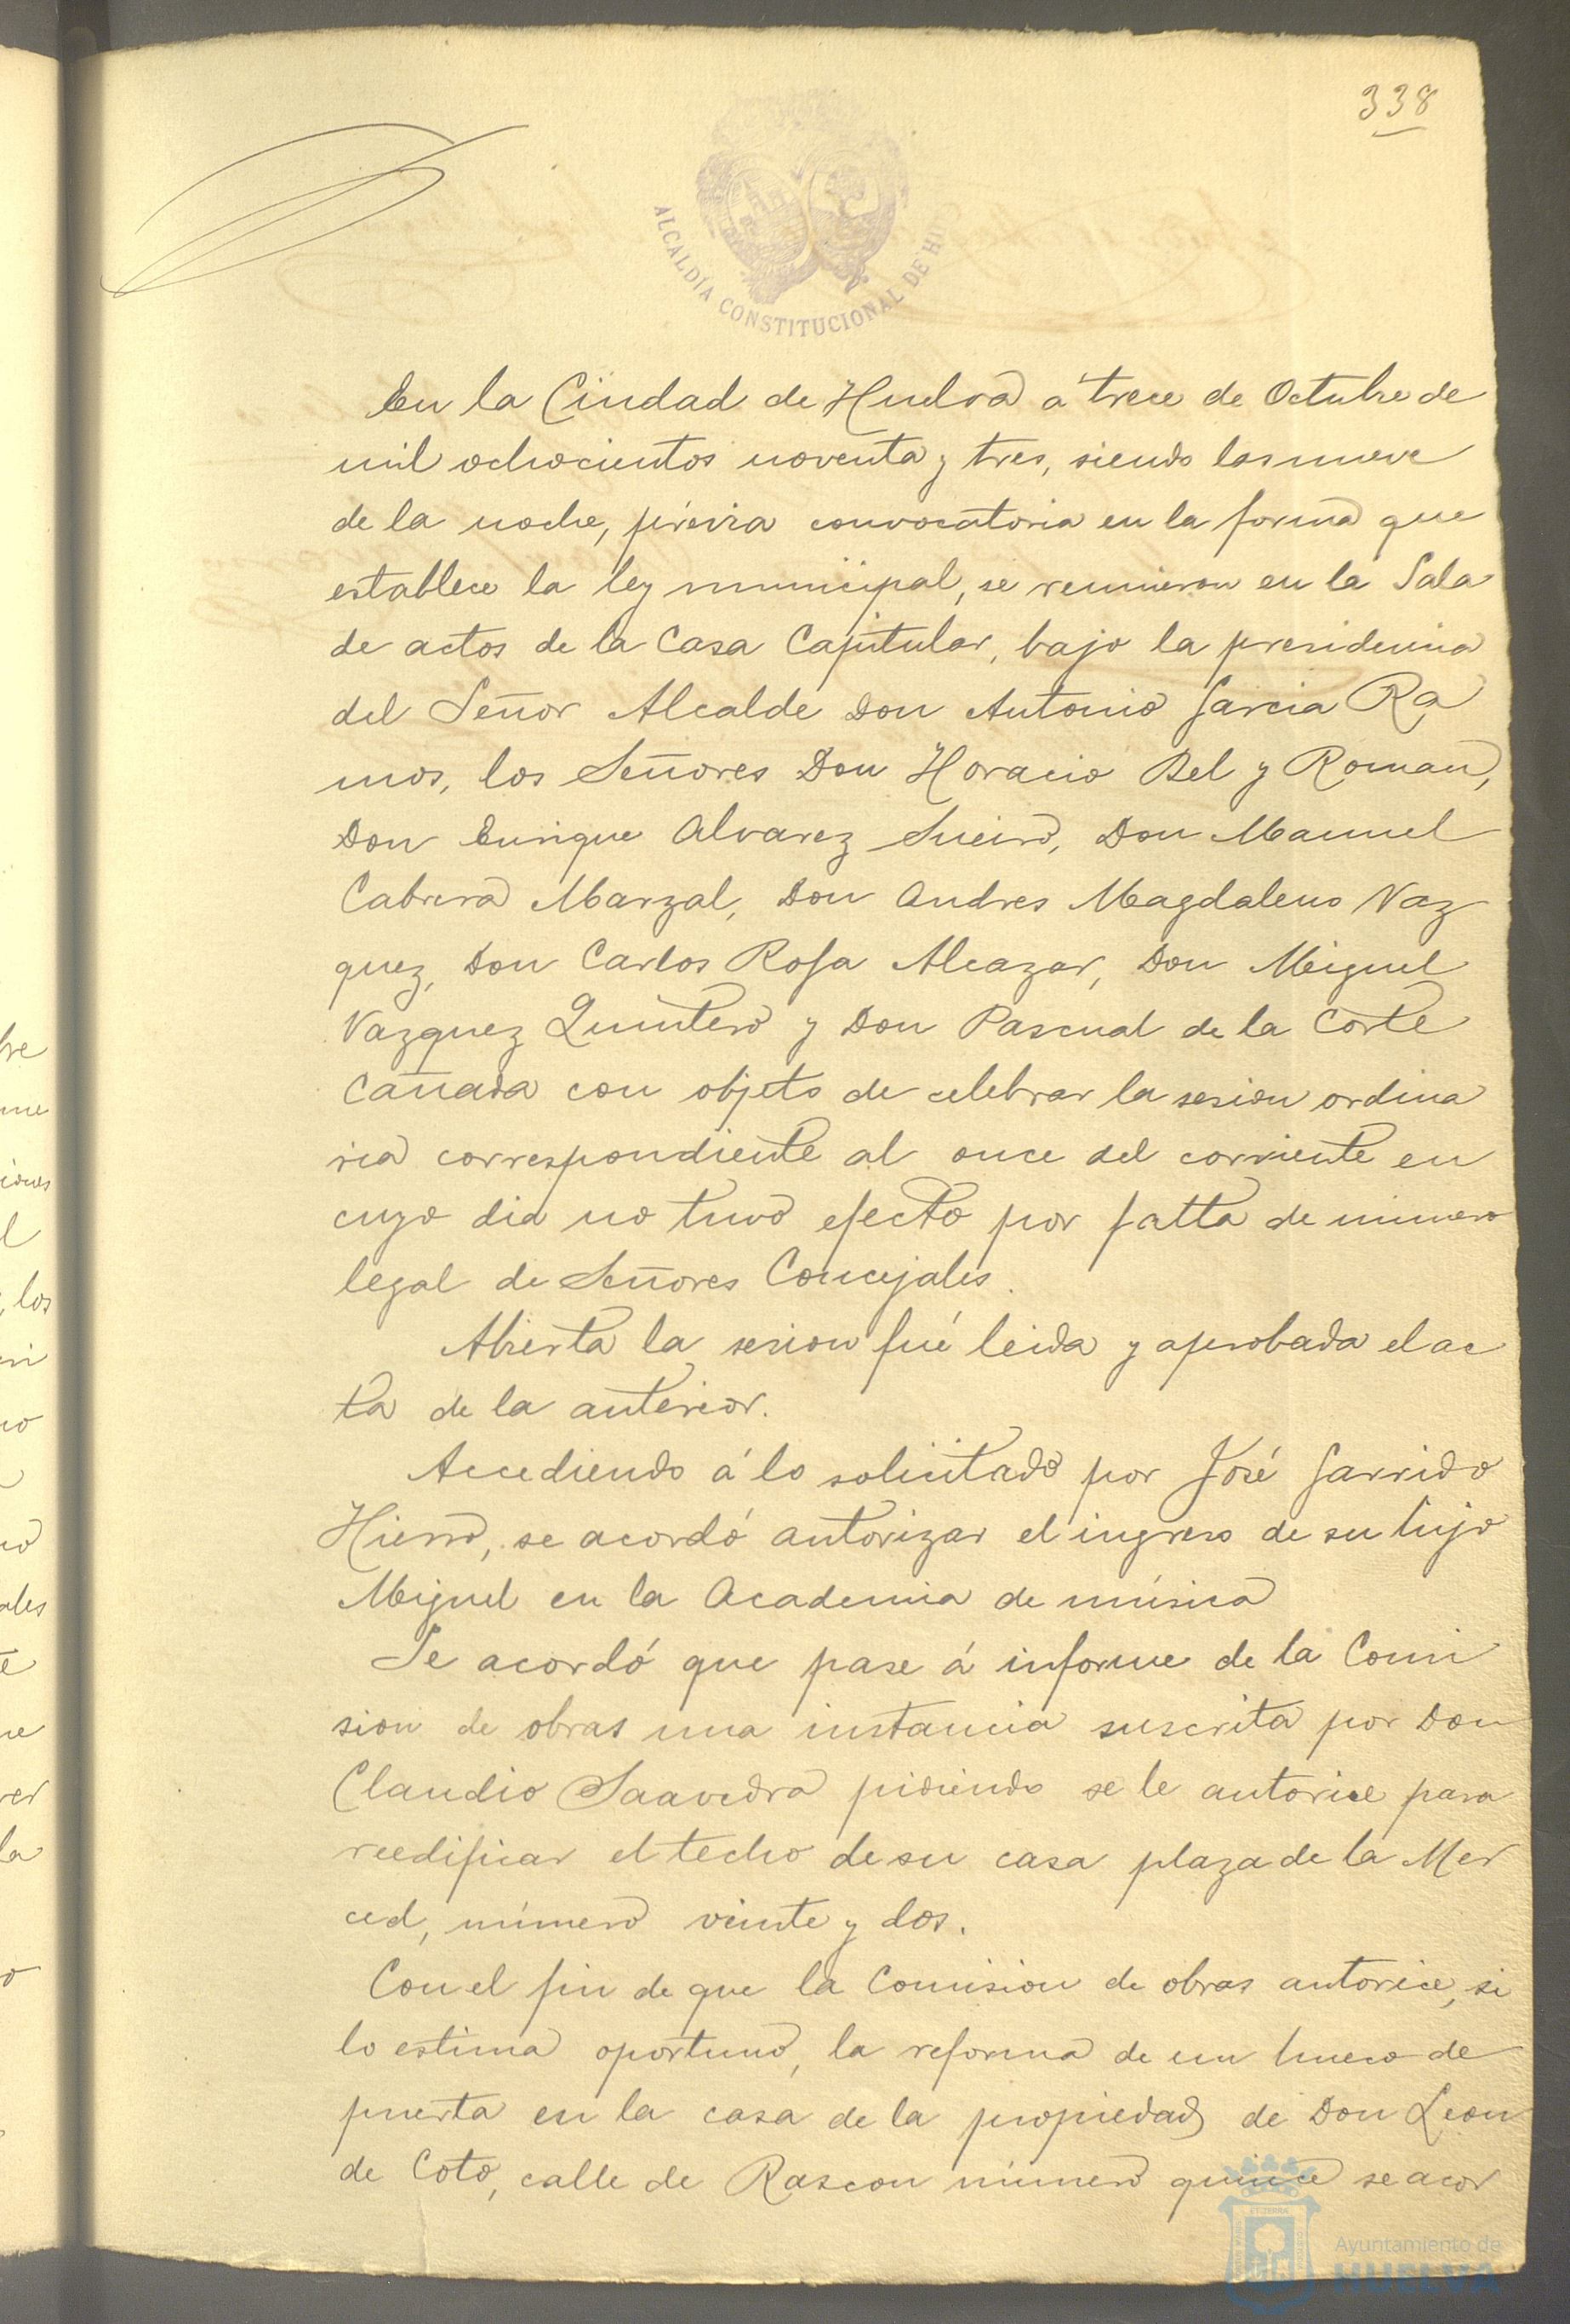 338
ALCALDÍA CONSTITUCIONAL DE HU
En la Ciudad de Huelva á trece de Octubre de
mil ochocientos noventa y tres, siendo las nueve
de la noche, prévia convocatoria en la forma que
establece la ley municipal, se reunieron en la Sala
de actos de la Casa Capitular, bajo la presidencia
del Señor Alcalde Don Antonio Garcia Ra
mos, los Señores Don Horacio Bel y Roman,
Don Enrique Alvarez Sueiro, Don Manuel
Cabrera Marzal, Don Andres Magdaleno Vaz
quez, Don Carlos Rosa Alcazar, Don Miguel
Vazquez Quintero y Don Pascual de la Corte
Cañada con objeto de celebrar la sesion ordina
ria correspondiente al once del corriente en
cuyo dia no tuvo efecto por falta de número
legal de Señores Concejales.
Abierta la sesion fué leida y aprobada el ac
ta de la anterior.
Accediendo á lo solicitado por José Garrido
Hierro, se acordó autorizar el ingreso de su hijo
Miguel en la Academia de música
Se acordó que pase á informe de la Comi
sion de obras una instancia suscrita por Don
Claudio Saavedra pidiendo se le autorice para
reedificar el techo de su casa plaza de la Mer
ced, número veinte y dos.
Con el fin de que la Comision de obras autorice, si
lo estima oportuno, la reforma de un hueco de
puerta en la casa de la propiedad de Don Leon
de Coto, calle de Rascon número quince se acor
Ayuntamiento de
HUELVA